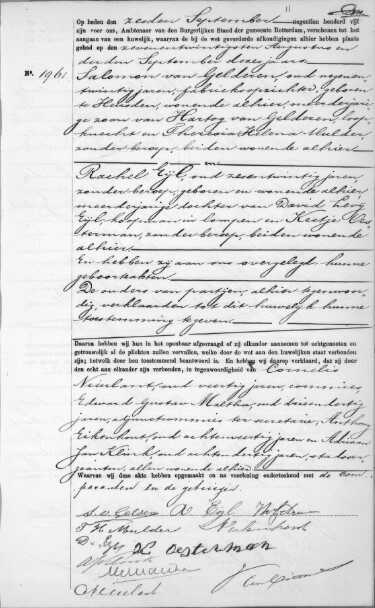 Op heden den zesden September negentien honderd vijf
zijn voor ons, Ambtenaar van den Burgerlijken Stand der gemeente Rotterdam, verschenen tot het
aangaan van een huwelijk, waarvan de bij de wet gevorderde afkondigingen alhier hebben plaats
gehad op den zevenentwintigsten Augustus en
derden September dezes jaars
No. 1961 Salomon van Gelderen, oud negenen-
twintig jaren, geboren
te Heusden, wonende alhier, meerderjari-
ge zoon van Hartog van Gelderen, loop-
knecht en Theresia Helena Mulder,
zonder beroep, beiden wonende alhier
en
Rachel Eijl, oud zesentwintig jaren,
zonder beroep, geboren en wonende alhier,
meerderjarige dochter van David Levy
Eijl, koopman in lompen en Keetje Oes-
terman, zonder beroep, beiden wonende
alhier.
En hebben zij aan ons overgelegd hunne
geboorteakten.
De ouders van partijen, alhier tegenwoor-
dig, verklaarden tot dit huwelijk hunne
toestemming te geven.
Daarna hebben wij hun in het openbaar afgevraagd of zij elkander aannemen tot echtgenooten en
getrouwelijk al de plichten zullen vervullen, welke door de wet aan den huwelijken staat verbonden
zijn; hetwelk door hen toestemmend beantwoord is. En hebben wij daarop verklaard, dat zij door
den echt aan elkander zijn verbonden, in tegenwoordigheid van Cornelis
Nieuland, oud veertig jaren, commies,
Edward Gustav, oud eisendertig
jaren, adjunct commies ter secretarie, Anthony
Eikenhout, oud achtenveertig jaren en Adriaan
Jan Klink, oud achtendertig jaren,
allen wonende alhier
Waarvan wij deze akte hebben opgemaakt en na voorlezing onderteekend met de com-
paranten en de getuigen.
S. v. Gelder R Eyl
T H Mulder
D. L. Eyl K Oesterman